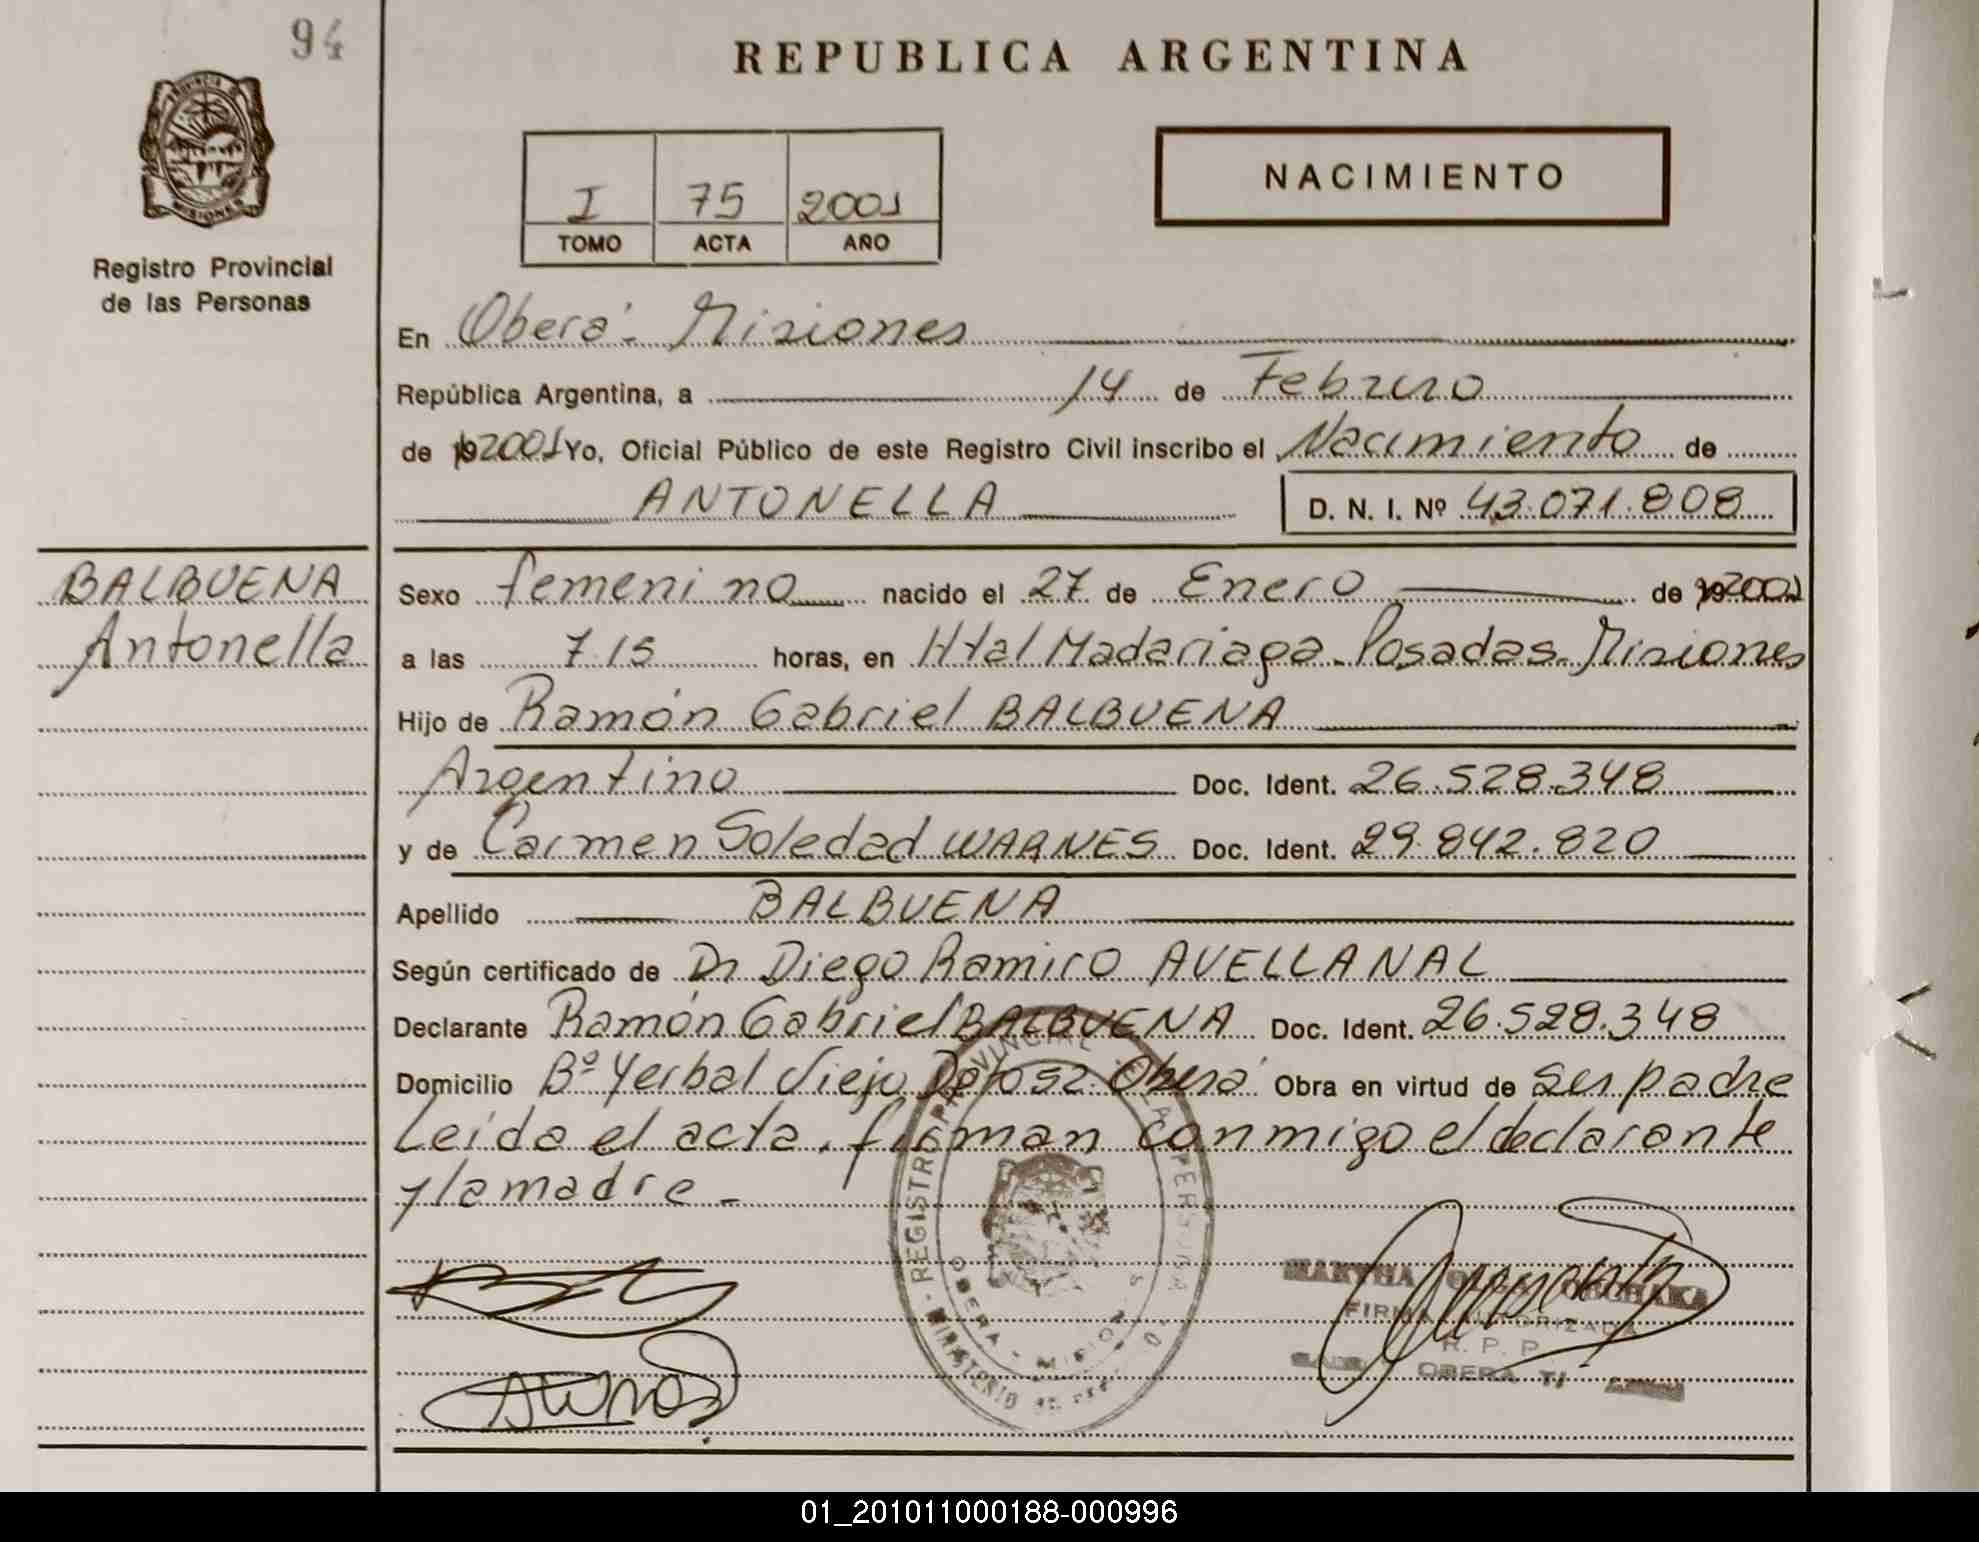 94
REPUBLICA ARGENTINA
PROVINCIA D
MISIONES
Registro Provincial
de las Personas
I 75 2001
TOMO ACTA AÑO
NACIMIENTO
En Oberá - Misiones
República Argentina, a 14 de Febrero
de 19 2001 Yo, Oficial Público de este Registro Civil inscribo el Nacimiento de
ANTONELLA
D. N. I. Nº 43.071.808
BALBUENA
Antonella
Sexo femenino nacido el 27 de Enero de 19 2001
a las 7.15 horas, en Htal Madariaga - Posadas - Misiones
Hijo de Ramón Gabriel BALBUENA
Argentino Doc. Ident. 26.528.348
y de Carmen Soledad WARNES Doc. Ident. 29.842.820
Apellido BALBUENA
Según certificado de Dr Diego Ramiro AVELLANAL
Declarante Ramón Gabriel BALBUENA Doc. Ident. 26.528.348
Domicilio Bº Yerbal Viejo Oberá Obra en virtud de ser padre
Leída el acta, firman conmigo el declarante
y la madre -
REGISTRO PROVINCIAL DE LAS PERSONAS
OBERA - MISIONES
MINISTERIO DE
MARTHA
FIRMA AUTORIZADA
R. P. P.
OBERA
01_201011000188-000996